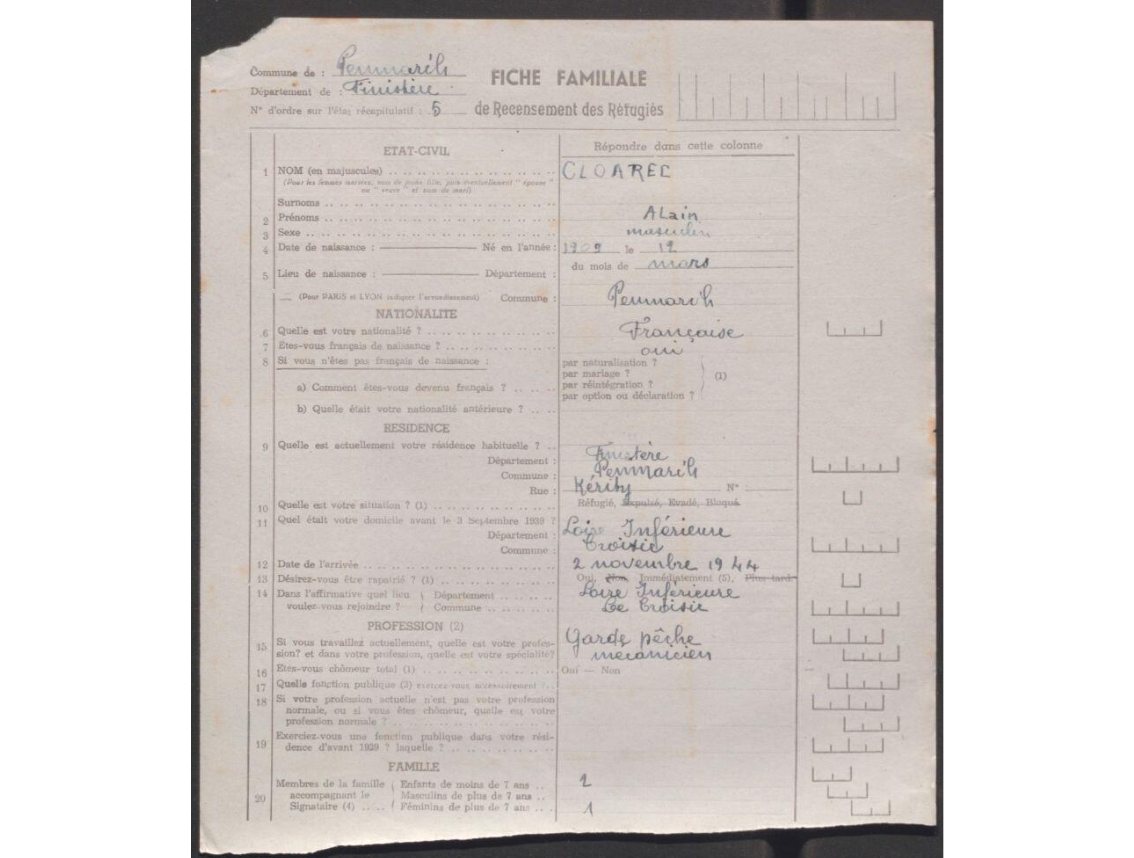 Commune de : Penmarc'h
FICHE FAMILIALE
Département de : Finistère
N° d'ordre sur l'état récapitulatif : 5
de Recensement des Réfugiés
ETAT-CIVIL
Répondre dans cette colonne
1 NOM (en majuscules) CLOAREC
(Pour les femmes mariées, nom de jeune fille, puis éventuellement " épouse "
ou " veuve " et nom du mari)
Surnoms
2 Prénoms Alain
3 Sexe masculin
4 Date de naissance : Né en l'année : 1909 le 12
du mois de mars
5 Lieu de naissance : Département :
(Pour PARIS et LYON indiquer l'arrondissement) Commune : Penmarc'h
NATIONALITE
6 Quelle est votre nationalité ? Française
7 Etes-vous français de naissance ? oui
8 Si vous n'êtes pas français de naissance :
par naturalisation ?
par mariage ? (1)
a) Comment êtes-vous devenu français ? par réintégration ?
par option ou déclaration ?
b) Quelle était votre nationalité antérieure ?
RESIDENCE
9 Quelle est actuellement votre résidence habituelle ?
Département : Finistère
Commune : Penmarc'h
Rue : Kérity N°
10 Quelle est votre situation ? (1) Réfugié, Expulsé, Evadé, Bloqué
11 Quel était votre domicile avant le 3 Septembre 1939 ?
Département : Loire Inférieure
Commune : Croisic
12 Date de l'arrivée 2 novembre 1944
13 Désirez-vous être rapatrié ? (1) Oui, Non, Immédiatement (5), Plus tard.
14 Dans l'affirmative quel lieu Département Loire Inférieure
voulez-vous rejoindre ? Commune Le Croisic
PROFESSION (2)
15 Si vous travaillez actuellement, quelle est votre profes- Garde pêche
sion? et dans votre profession, quelle est votre spécialité? mécanicien
16 Etes-vous chômeur total (1) Oui — Non
17 Quelle fonction publique (3) exercez-vous actuellement ?
18 Si votre profession actuelle n'est pas votre profession
normale, ou si vous êtes chômeur, quelle est votre
profession normale ?
19 Exerciez-vous une fonction publique dans votre rési-
dence d'avant 1939 ? laquelle ?
FAMILLE
Membres de la famille Enfants de moins de 7 ans 2
20 accompagnant le Masculins de plus de 7 ans
Signataire (4) Féminins de plus de 7 ans 1